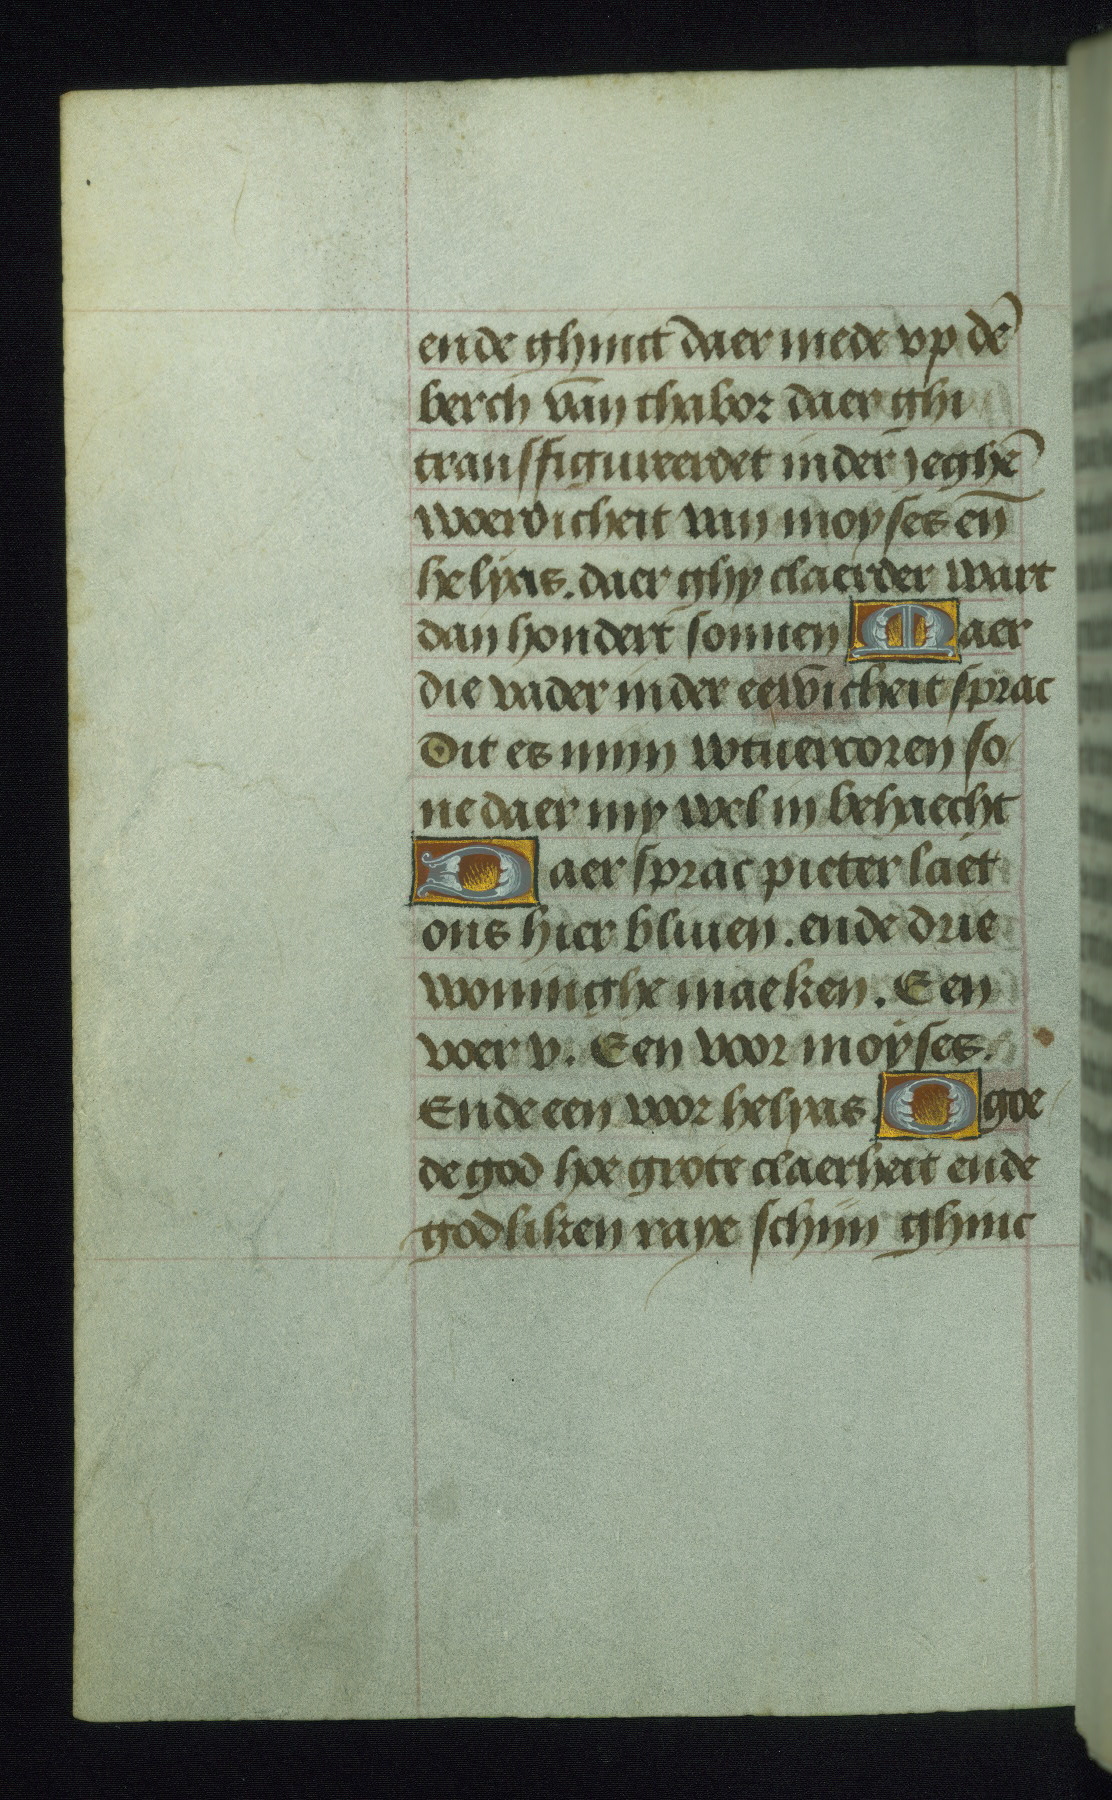 ende ghinct daer mede vp dē
berch van thabor daer ghi
transffigureerdet in der jeghē
woerdicheit van moyses eñ
helyas. daer ghy claerder wart
dan hondert sonnen Maer
die vader in der eewicheit sprac
Dit es mijn wtuercoren so
ne daer my wel in behaecht
Daer sprac pieter laet
ons hier bliuen. ende drie
woninghe maeken. Een
voer v. Een voor moyses.
Ende een voor helyas O goe
de god hoe grote claerheit ende
godliken raye schijn ghinc